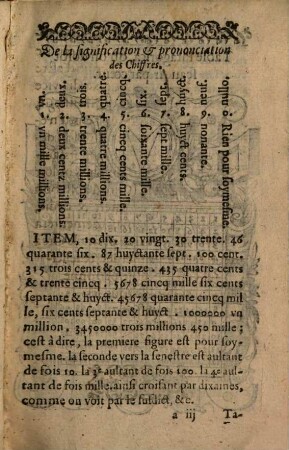 De la signification & prononciation
des Chiffres.
1. vn. vn mille millions.
2. deux. deux centz millions.
3. trois. trente millions.
4. quatre. quatre millions.
5. cinq. cincq cents mille.
6. six. soixante mille.
7. sept. sept mille.
8. huyct. huyct cents.
9. neuf. nonante.
0. nulle. Rien pour soymesme.
ITEM, 10 dix. 20 vingt. 30 trente. 46
quarante six. 87 huyctante sept. 100 cent.
315 trois cents & quinze. 435 quatre cents
& trente cincq. 5678 cincq mille six cents
septante & huyct. 45678 quarante cincq mil
le, six cents septante & huyct. 1000000 vn
million, 3450000 trois millions 450 mille;
cest à dire, la premiere figure est pour soy-
mesme. la seconde vers la senestre est aultant
de fois 10. la 3e aultant de fois 100. la 4e aul-
tant de fois mille. ainsi croisant par dixaines,
comme on voit par le susdict, &c.
a iij Ta-